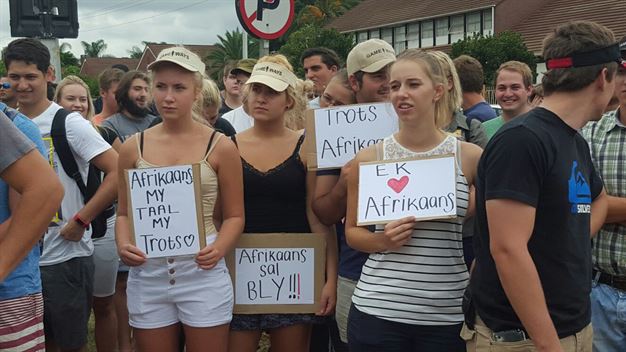 GAMEWAYS
GAMEWAYS
GAMEWAYS
TROTS
Afrikaans
EK ♥
Afrikaans
Afrikaans
MY
TAAL
MY
Trots♡
Afrikaans
sal
BLY!!!